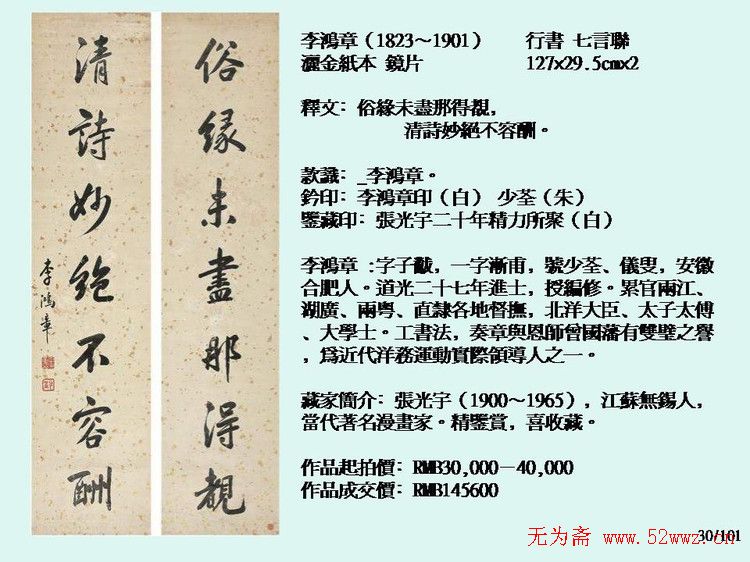 俗緣未盡那得覩
清詩妙絕不容酬
李鴻章
李鴻章（1823～1901） 行書 七言聯
灑金紙本 鏡片 127x29.5cmx2
釋文：俗緣未盡那得覩，
清詩妙絕不容酬。
款識：_李鴻章。
鈐印：李鴻章印（白） 少荃（朱）
鑒藏印：張光宇二十年精力所聚（白）
李鴻章 :字子黻，一字漸甫，號少荃、儀叟，安徽
合肥人。道光二十七年進士，授編修。累官兩江、
湖廣、兩粵、直隸各地督撫，北洋大臣、太子太傅
、大學士。工書法，奏章與恩師曾國藩有雙璧之譽
，爲近代洋務運動實際領導人之一。
藏家簡介：張光宇（1900～1965），江蘇無錫人，
當代著名漫畫家。精鑒賞，喜收藏。
作品起拍價：RMB30,000－40,000
作品成交價：RMB145600
30/101
无为斋 www.52wwz.cn